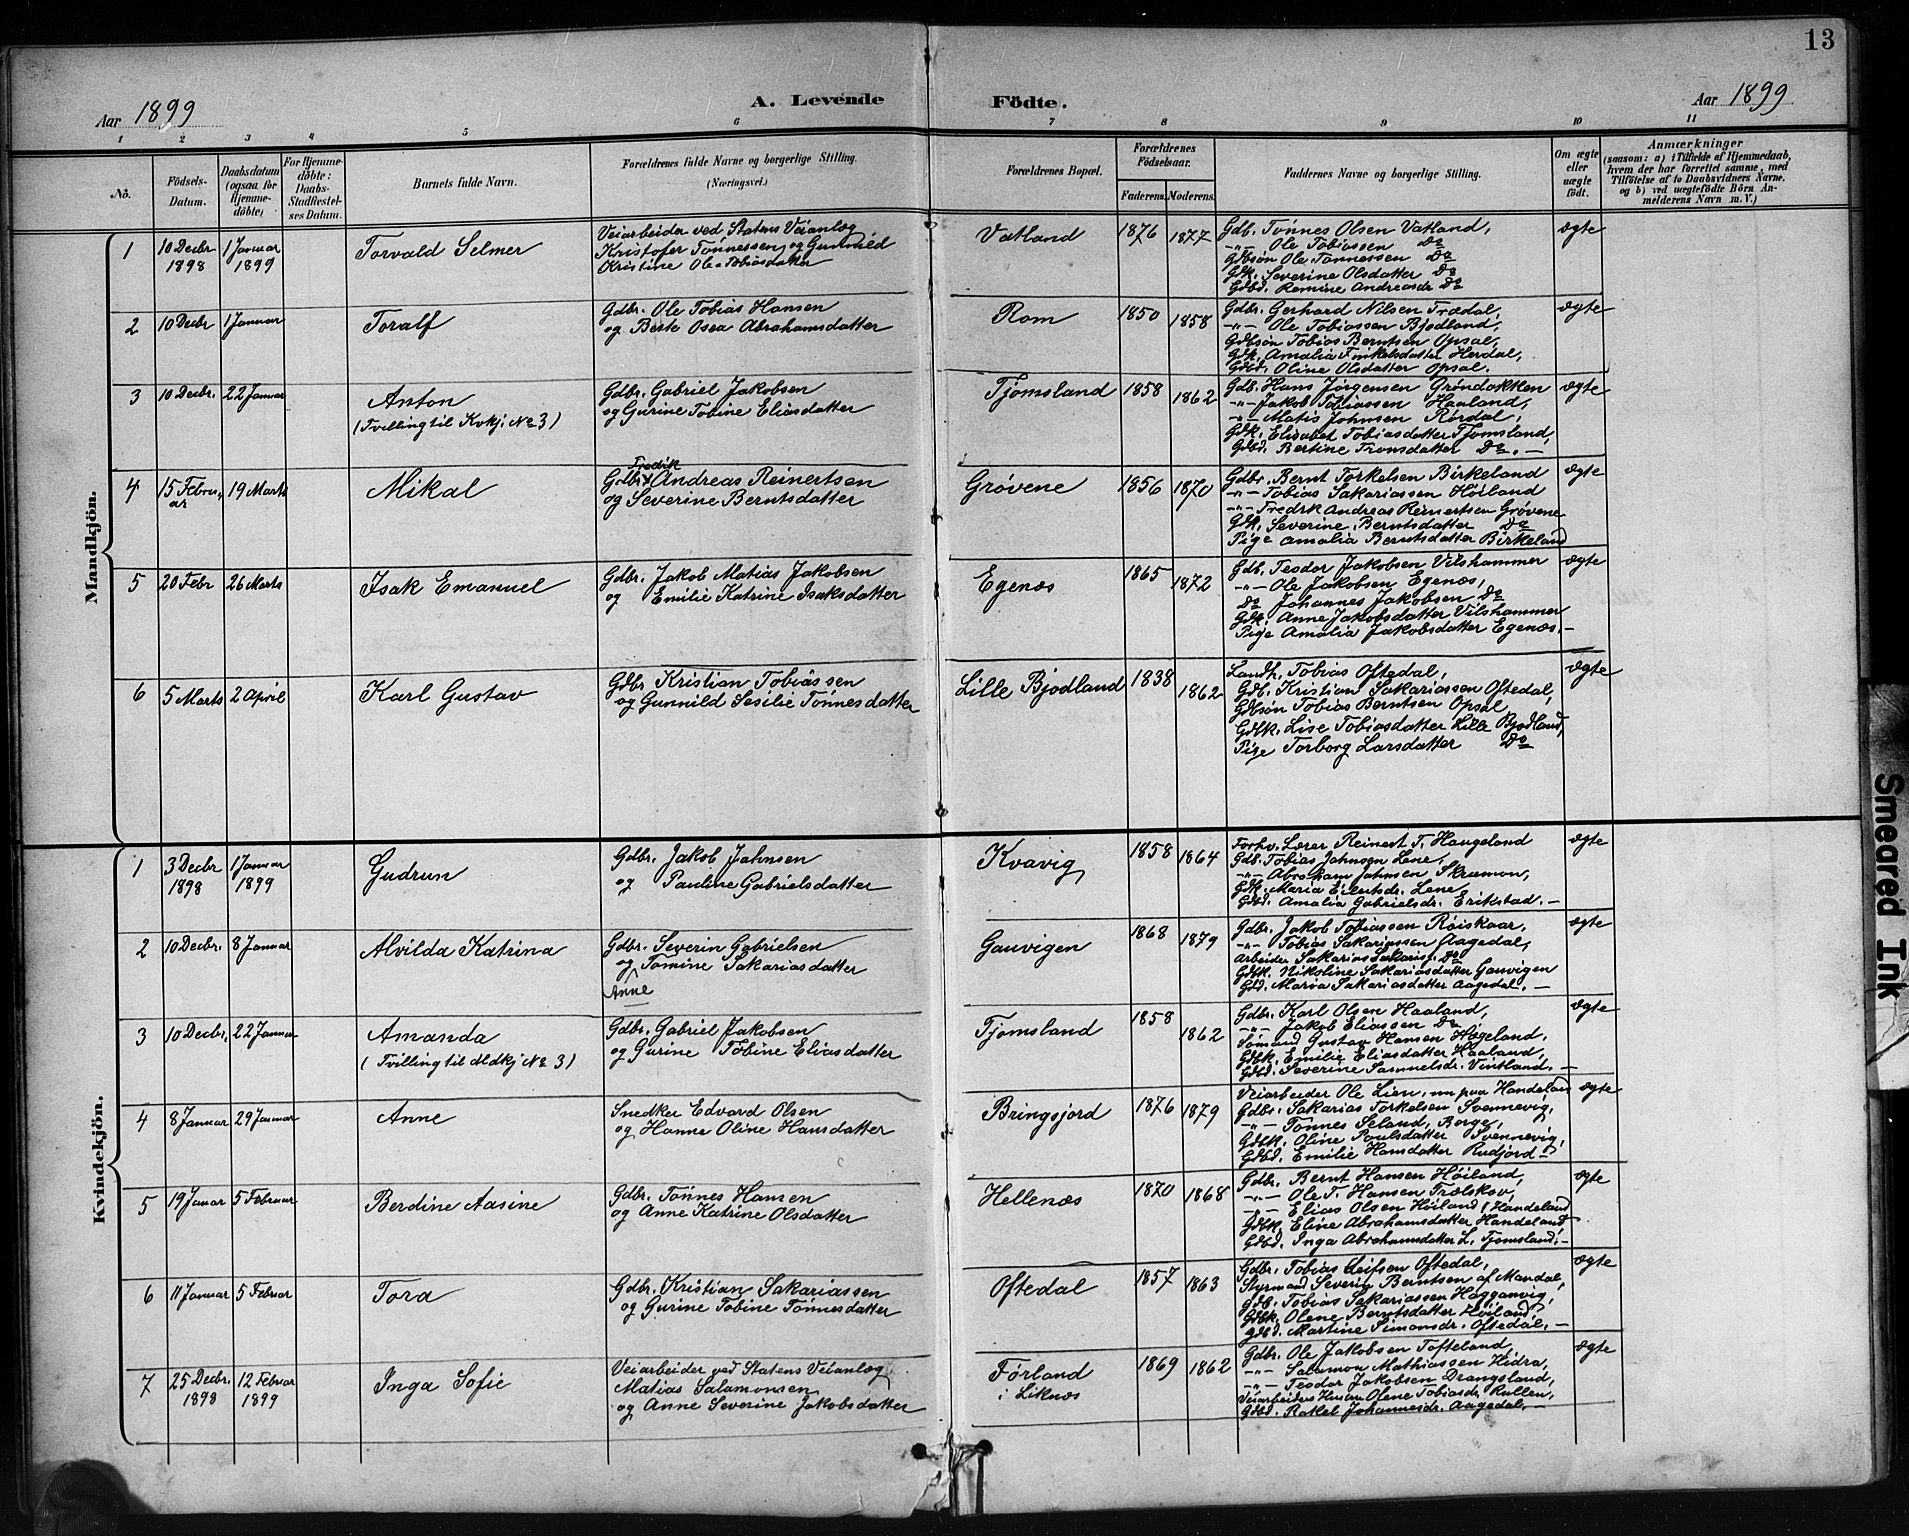 13
Aar 1899 A. Levende Födte. Aar 1899
1 2 3 4 5 6 7 8 9 10 11
No. Födsels-Datum. Daabsdatum (ogsaa for Hjemme-döbte) For Hjemme-döbte: Daabs-Stadfæstel-ses Datum. Barnets fulde Navn. Forældrenes fulde Navne og borgerlige Stilling. (Næringsvei.) Forældrenes Bopæl. Forældrenes Födselsaar. Faderens. Moderens. Faddernes Navne og borgerlige Stilling. Om ægte eller uægte födt. Anmærkninger (saasom: a) i Tilfælde af Hjemmedaab, hvem der har forrettet samme, med Tilföielse af to Daabsvidners Navne, og b) ved uægtefödte Börn An-melderens Navn m. V.)
Mandkjön.
1 10 Decbr 1898 1 Januar 1899 Torvald Selmer
Veiarbeider ved Statens Veianlæg
Kristofer Tønnessen og Gunnild
Kristine Ole Tobiasdatter
Vatland 1876 1877
Gdb. Tønnes Olsen Vatland,
-"- Ole Tobiassen Do
Gdbsøn Ole Tønnessen Do
Gdk. Severine Olsdatter Do
Gdbd. Remine Andreasdr Do
ægte
2 10 Decbr 1 Januar Toralf
Gdbr. Ole Tobias Hansen
og Berte Osea Abrahamsdatter
Rom 1850 1858
Gdbr. Gerhard Nilsen Trædal,
-"- Ole Tobiassen Bjodland,
Gdbsøn Tobias Berntsen Opsal,
Gdk. Amalia Finkelsdatter Herdal,
Gdbd. Oline Olsdatter Opsal.
ægte
3 10 Decbr. 22 Januar Anton
(Tvilling til Kvkj. No 3)
Gdbr. Gabriel Jakobsen
og Gurine Tobine Eliasdatter
Tjomsland 1858 1862
Gdb. Hans Jørgensen Grøndokken
-"- Jakob Tobiassen Haaland,
-"- Matis Johnsen Rørdal,
Gdk. Elisabet Tobiasdatter Tjomsland,
Gdbd. Bertine Tromsdatter Do. —
ægte
4 15 Februar 19 Marts Mikal
Fredrik
Gdbr. Andreas Reinertsen
og Severine Berntsdatter
Grøvene 1856 1870
Gdbr. Bernt Torkelsen Birkeland
-"- Tobias Sakariassen Høiland
-"- Fredrk Andreas Reinertsen Grøvene
Gdk. Severine Berntsdatter Do
Pige Amalia Berntsdatter Birkeland
ægte
5 20 Febr 26 Marts Isak Emanuel
Gdbr. Jakob Matias Jakobsen
og Emilie Katrine Isaksdatter
Egenæs 1865 1872
Gdb. Teodor Jakobsen Vilshammer
-"- Ole Jakobsen Egenæs,
Do Johannes Jakobsen Do
Gdk. Anne Jakobsdatter Vilshammer
Pige Amalia Jakobsdatter Egenæs. —
ægte
6 5 Marts 2 April Karl Gustav
Gdbr Kristian Tobiassen
og Gunnild Sesilie Tønnesdatter
Lille Bjodland 1838 1862
Landh. Tobias Oftedal,
Gdb. Kristian Sakariassen Oftedal,
Gdbsøn Tobias Berntsen Opsal,
Gdbk. Lise Tobiasdatter Lille Bjodland,
Pige Torborg Larsdatter Do
ægte
Kvindekjön.
1 3 Decbr 1898 1 Januar 1899 Gudrun
Gdbr. Jakob Johnsen
og Pauline Gabrielsdatter
Kvavig 1858 1864
Forhv. Lærer Reinert T. Haugeland
Gdb. Tobias Johnsen Lene,
-"- Abraham Johnsen Skrumon,
Gdk. Maria Eilertsdr. Lene,
Gdbd. Amalia Gabrielsdr. Erikstad. —
ægte
2 10 Decbr. 8 Januar Alvilda Katrina
Gdbr. Severin Gabrielsen
og Tomine Sakariasdatter
Anne
Gauvigen 1868 1879
Gdbr. Jakob Tobiassen Røiskaar,
-"- Tobias Sakariassen Aagedal,
Arbeider Sakarias Sakarias. Do
Gdbk. Nikoline Sakariasdatter Gauvigen
Gbd. Maria Sakariasdatter Aagedal. —
ægte
3 10 Decbr. 22 Januar Amanda
(Tvilling til Mdkj No 3)
Gdbr. Gabriel Jakobsen
og Gurine Tobine Eliasdatter
Tjomsland 1858 1862
Gdbr. Karl Olsen Haaland,
-"- Jakob Eliassen Do
Sømand Gustav Hansen Hageland,
Gdbk. Emilie Eliasdatter Haaland,
Gdbd. Severine Samuelsdr. Vintland. —
ægte
4 8 Januar 29 Januar Anne
Snedker Edvard Olsen
og Hanne Oline Hansdatter
Bringsjord 1876 1879
Veiarbeider Ole Lien, nu paa Handeland
Gdbr. Sakarias Torkelsen Svennevig,
-"- Tønnes Seland, Borge,
Gdbk. Oline Poulsdatter Svennevig,
Gdbd. Emilie Hansdatter Rudjord —
ægte
5 19 Januar 5 Februar Berdine Aasine
Gdbr. Tønnes Hansen
og Anne Katrine Olsdatter
Hellenæs 1870 1868
Gdbr. Bernt Hansen Høiland,
-"- Ole T. Hansen Trælskov,
-"- Elias Olsen Høiland (Handeland
Gdbk. Eline Abrahamsdatter Handeland
Gdbd. Inga Abrahamsdatter L. Tjomsland. —
ægte
6 11 Januar 5 Februar Tora
Gdbr. Kristian Sakariassen
og Gurine Tobine Tønnesdatter
Oftedal 1857 1863
Gdbr. Tobias Leifsen Oftedal,
Styrmand Severin Berntsen af Mandal,
Gdb. Tobias Sakariassen Hagganvig,
Gdbk. Olene Berntsdatter Høiland
gdbd. Martine Simonsdr. Oftedal. —
ægte
7 25 Decbr. 1898 12 Februar 1899 Inga Sofie
Veiarbeider ved Statens Veianlæg
Matias Salamonsen
og Anne Severine Jakobsdatter
Førland i Liknæs 1869 1862
Gdbr. Ole Jakobsen Tofteland,
-"- Salamon Mathiassen Hidra,
-"- Teodor Jakobsen Drangsland,
Veiarbeiders Hustru Olene Tobiasdr. Kullen,
Gdbd. Rakel Johannesdr. Aagedal, —
ægte
Smeared Ink